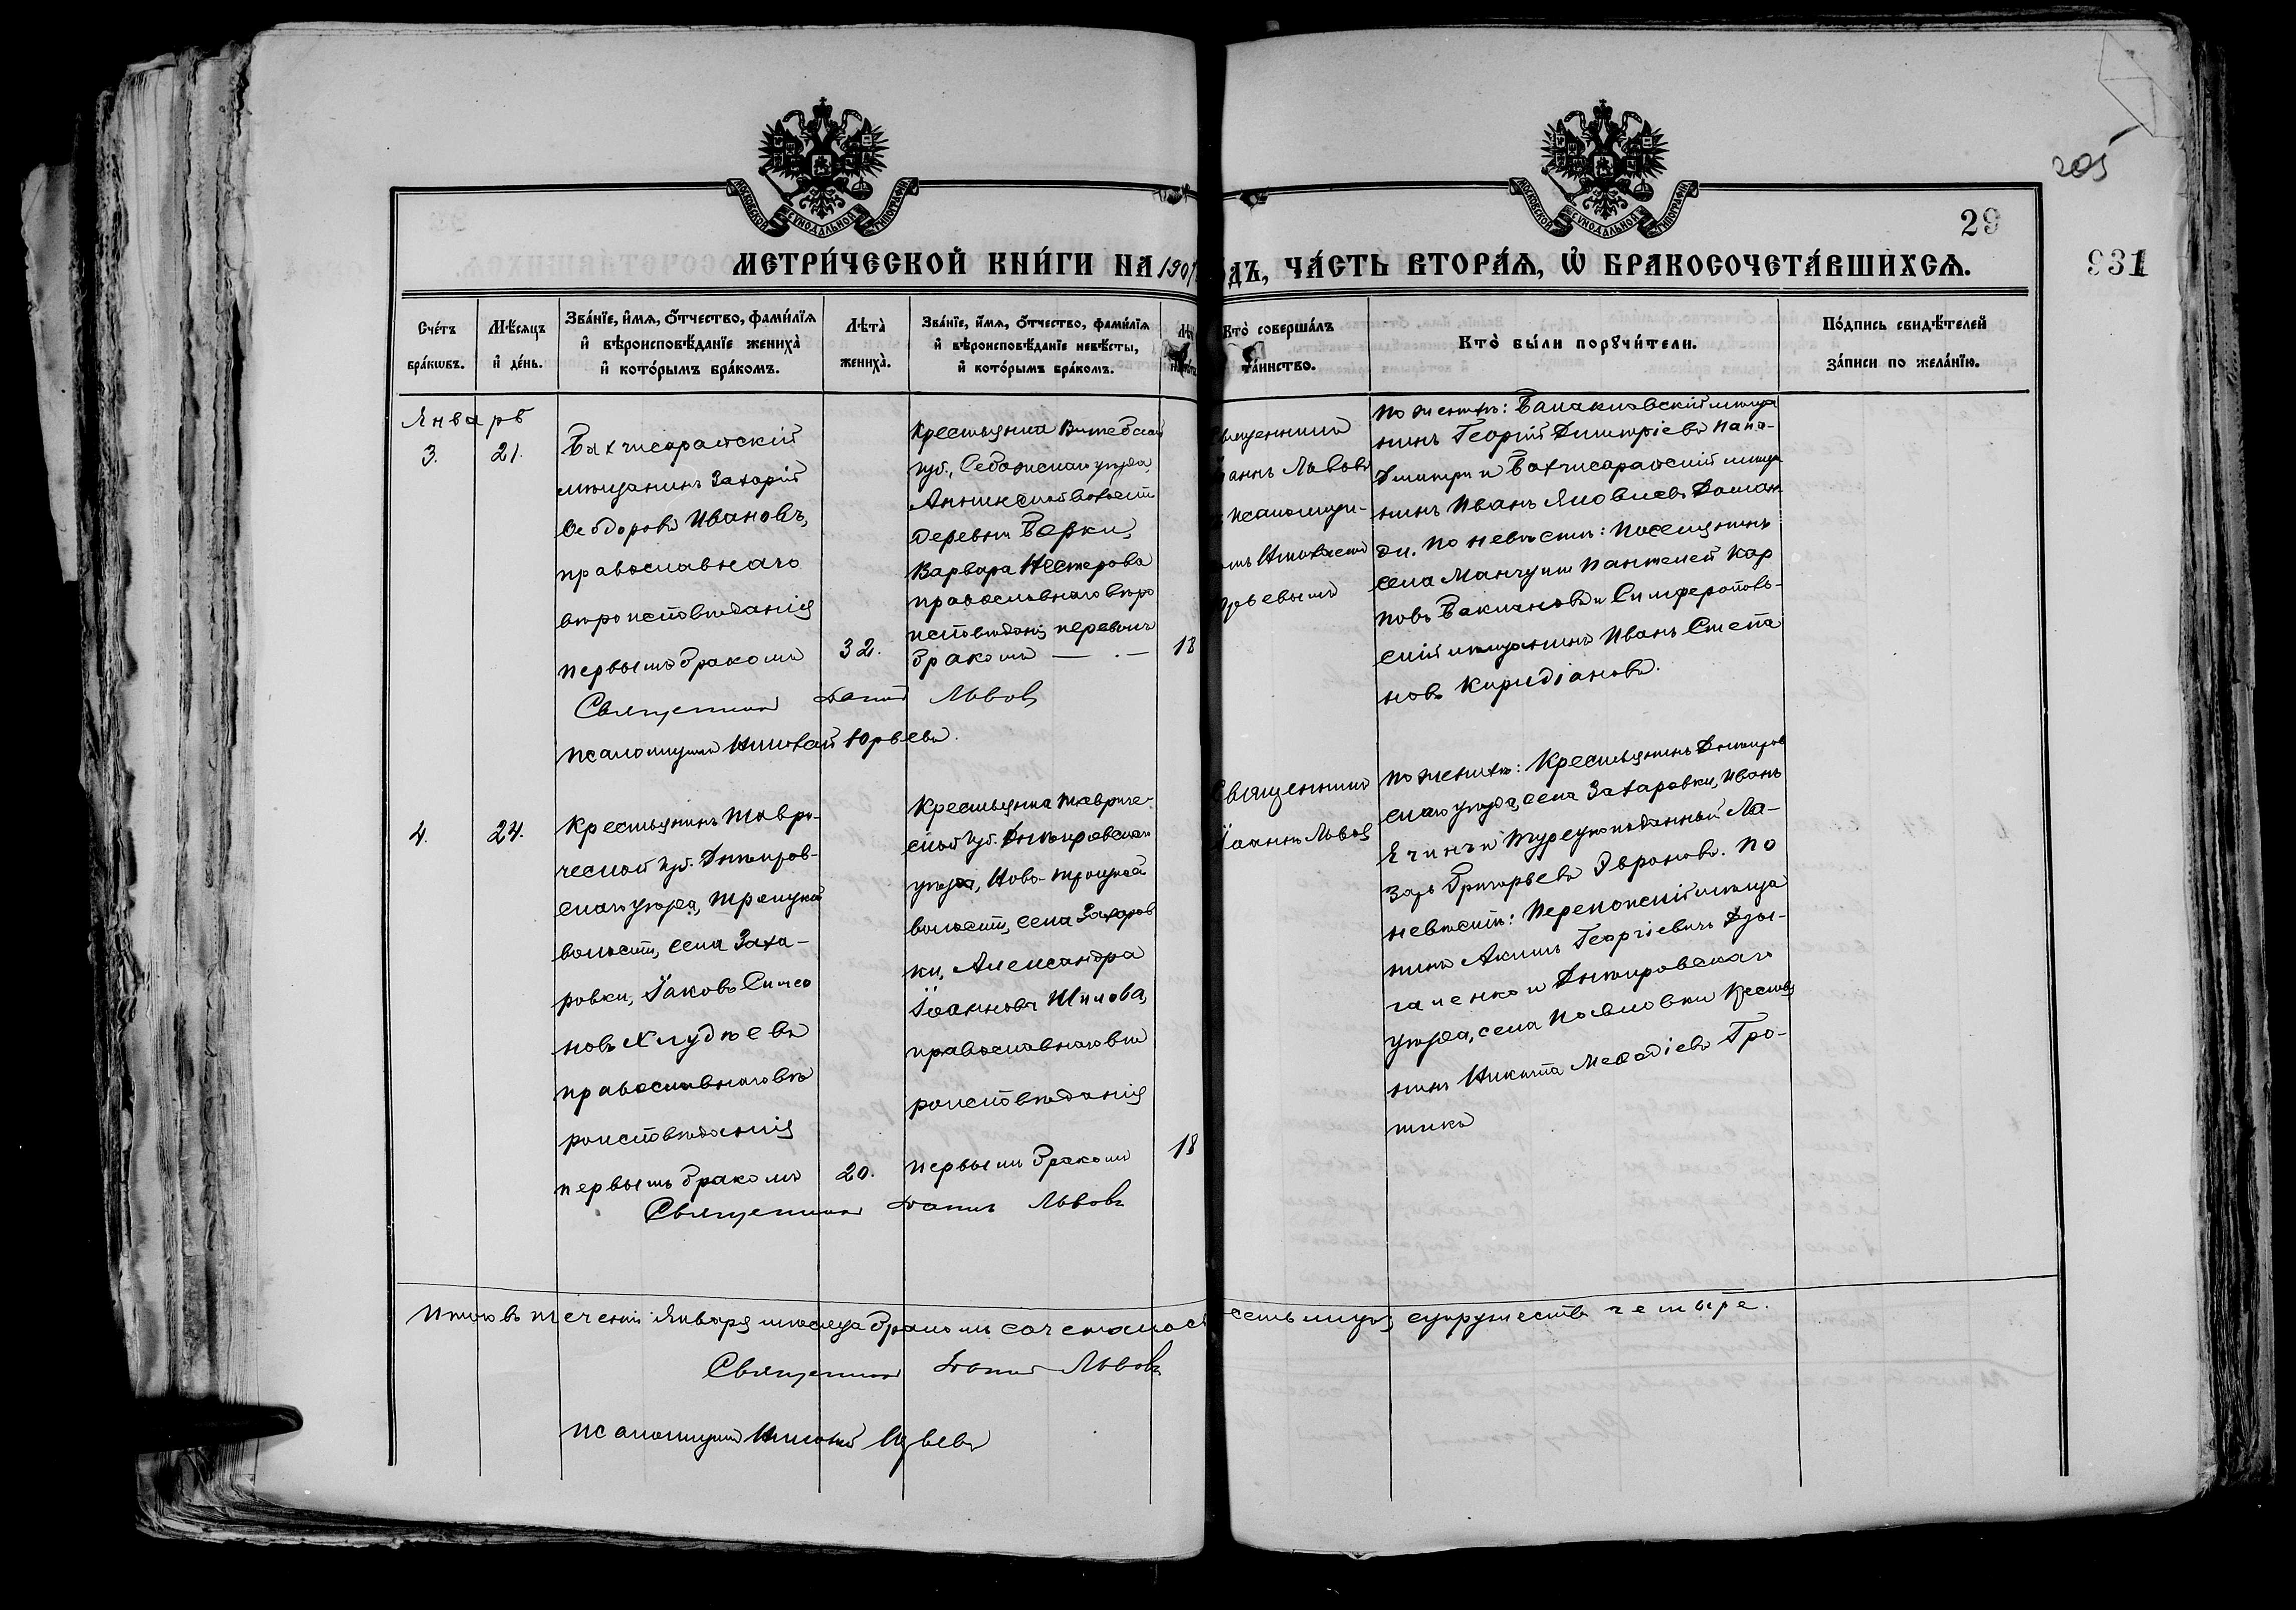 205
29
931
МОСКОВСКОЙ СѴНОДАЛЬНОЙ ТИПОГРАФІИ
МОСКОВСКОЙ СѴНОДАЛЬНОЙ ТИПОГРАФІИ
МЕТРИ́ЧЕСКОЙ КНИ́ГИ НА 1907
ДЪ, ЧА́СТЬ ВТОРА́Ѧ, Ѽ БРАКОСОЧЕТА́ВШИХСѦ.
Сче́тъ бра́кѡвъ.
Мѣ́сѧцъ и҆ де́нь.
Зва́нїе, и҆́мѧ, ѻ҆́тчество, фами́лїѧ
и҆ вѣроисповѣ́данїе жениха̀
и҆ кото́рымъ бра́комъ.
Лѣта̀ жениха̀.
Зва́нїе, и҆́мѧ, ѻ҆́тчество, фами́лїѧ
и҆ вѣроисповѣ́данїе невѣ́сты,
и҆ кото́рымъ бра́комъ.
Кто̀ соверша́лъ
та́инство.
Кто̀ бы́ли порꙋчи́тели.
По́дпись свидѣ́телей
за́писи по жела́нїю.
Январь
3.
21.
Бахчисарайскій
мѣщанинъ Захарій
Ѳеодоровъ Ивановъ,
православнаго
вѣроисповѣданія
первымъ бракомъ
32.
Крестьянка Витебской
губ., Себежскаго уѣзда,
волости
деревни Борки,
Варвара Нестерова
православнаго вѣро
исповѣданія первымъ
бракомъ — . —
18
Священникъ Іоаннъ Львовъ
псаломщикъ Николай Юрьевъ.
вященникъ
аннъ Львовъ
псаломщи-
омъ Николаемъ
рьевымъ
По женихѣ: Балаклавскій мѣща
нинъ Георгій Димитріевъ Папа-
Димитри и Бахчисарайскій мѣща
нинъ Иванъ Яковлевъ
ди. По невѣстѣ: Поселянинъ
села Мангушъ Пантелей Кар
повъ и Симферополь-
скій мѣщанинъ Иванъ Степа
новъ Кириліановъ.
4.
24.
Крестьянинъ Таври-
ческой губ. Днѣпров-
скаго уѣзда, Троицкой
волости, села Заха-
ровки, Іаковъ Симео
новъ Хлудѣевъ
православнаго вѣ
роисповѣданія
первымъ бракомъ
20.
Крестьянка Тавриче-
ской губ. Днѣпровскаго
уѣзда, Ново-Троицкой
волости, села Захаров
ки, Александра
Іоаннова Шилова,
православнаго вѣ
роисповѣданія
первымъ бракомъ
18
Священникъ Іоаннъ Львовъ
вященникъ
Іоаннъ Львовъ
По женихѣ: Крестьянинъ Днѣпров
скаго уѣзда, села Захаровки, Иванъ
Ячинъ и Турецкоподданный Ла-
зарь Григорьевъ Эвроновъ. По
невѣстѣ: Перекопскій мѣща
нинъ Акимъ Георгіевичъ Дзы-
галенко и Днѣпровскаго
уѣзда, села Павловки крестья
нинъ Никита Меѳодіевъ Гро-
шко
Итого въ теченіи Января мѣсяца бракомъ сочеталос
семь лицъ, супружествъ четыре.
Священникъ Іоаннъ Львовъ
псаломщикъ Николай Юрьевъ